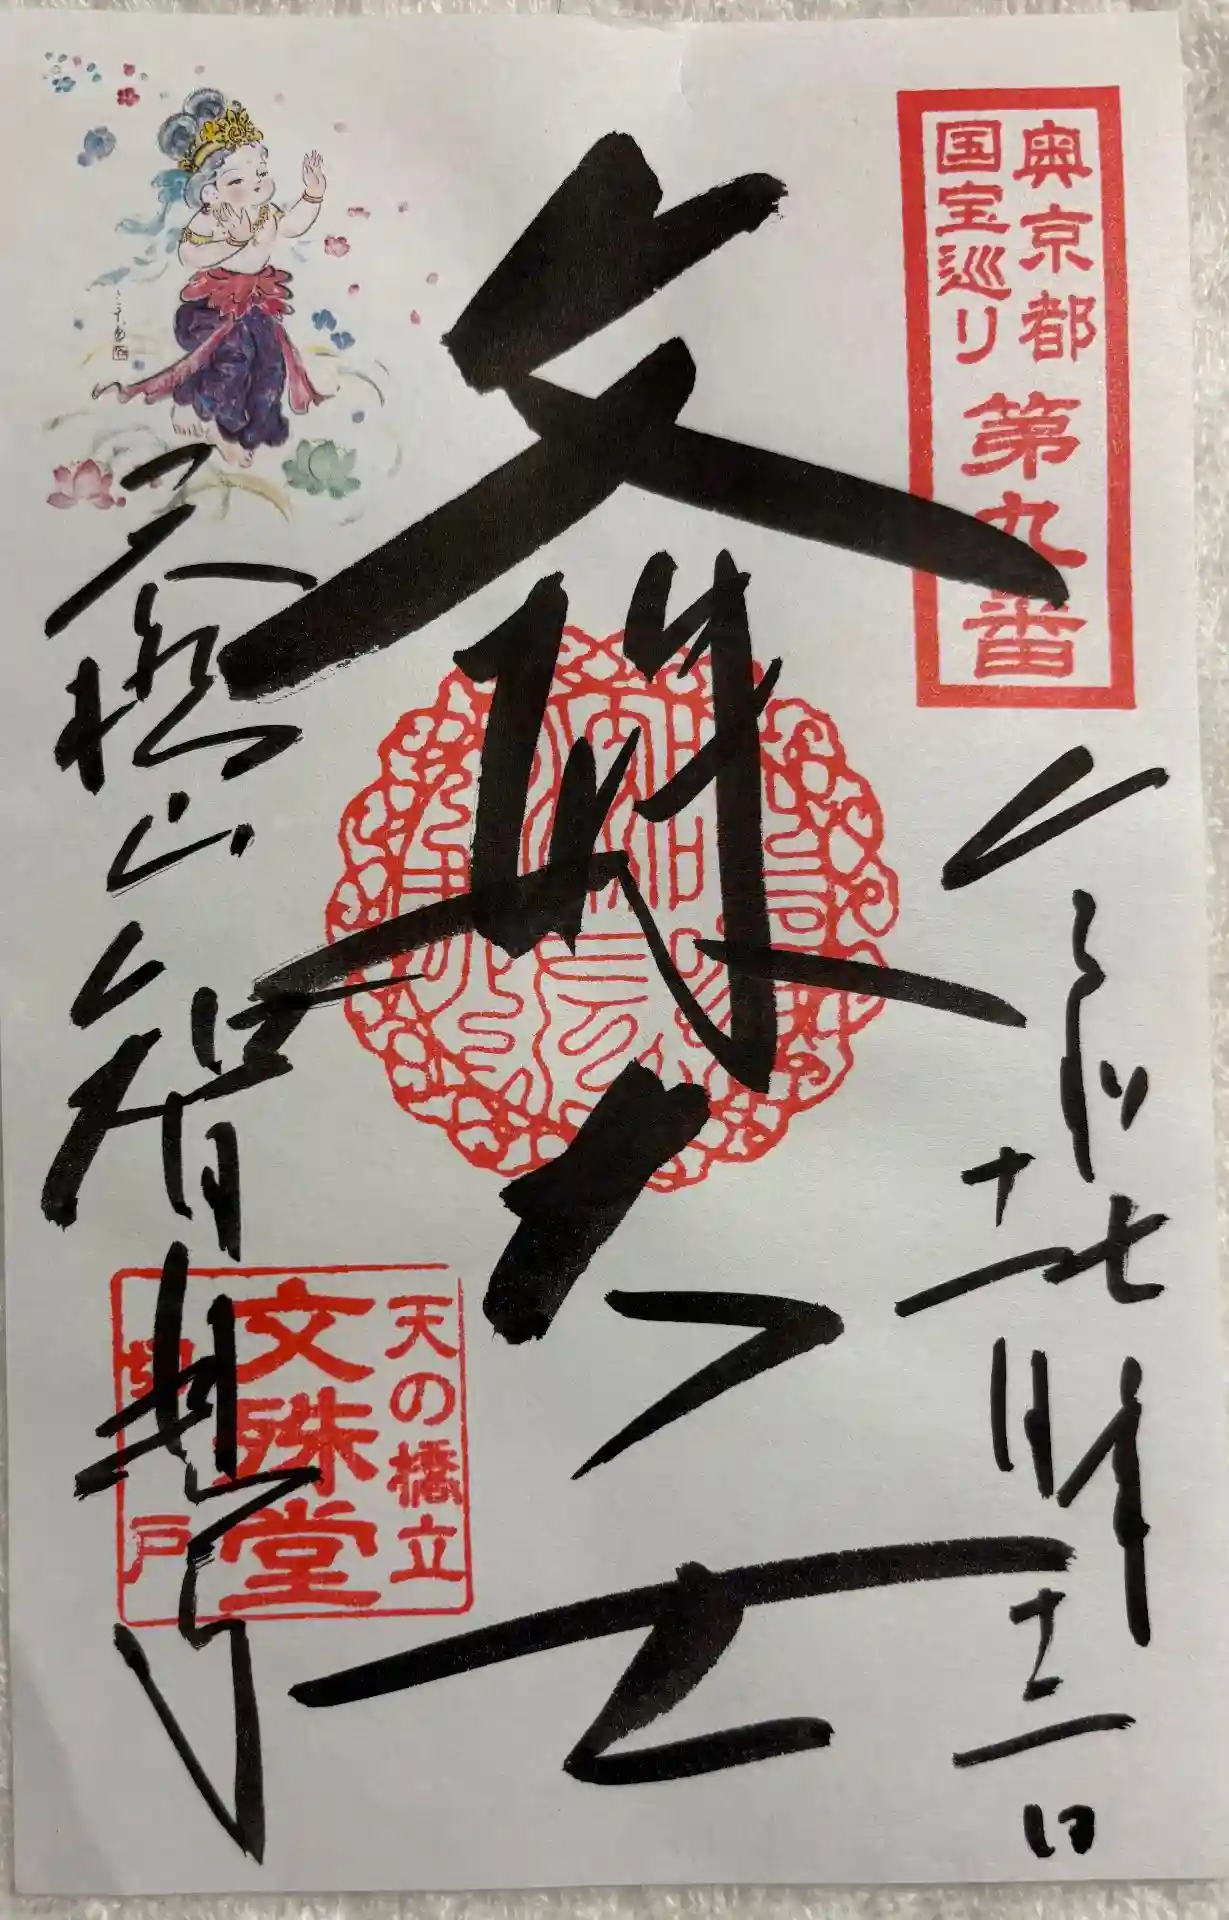 奥京都
国宝巡り
第九番
令和七年
十一月十二日
文殊大士
天橋山
智恩寺
天の橋立
文殊堂
切戸